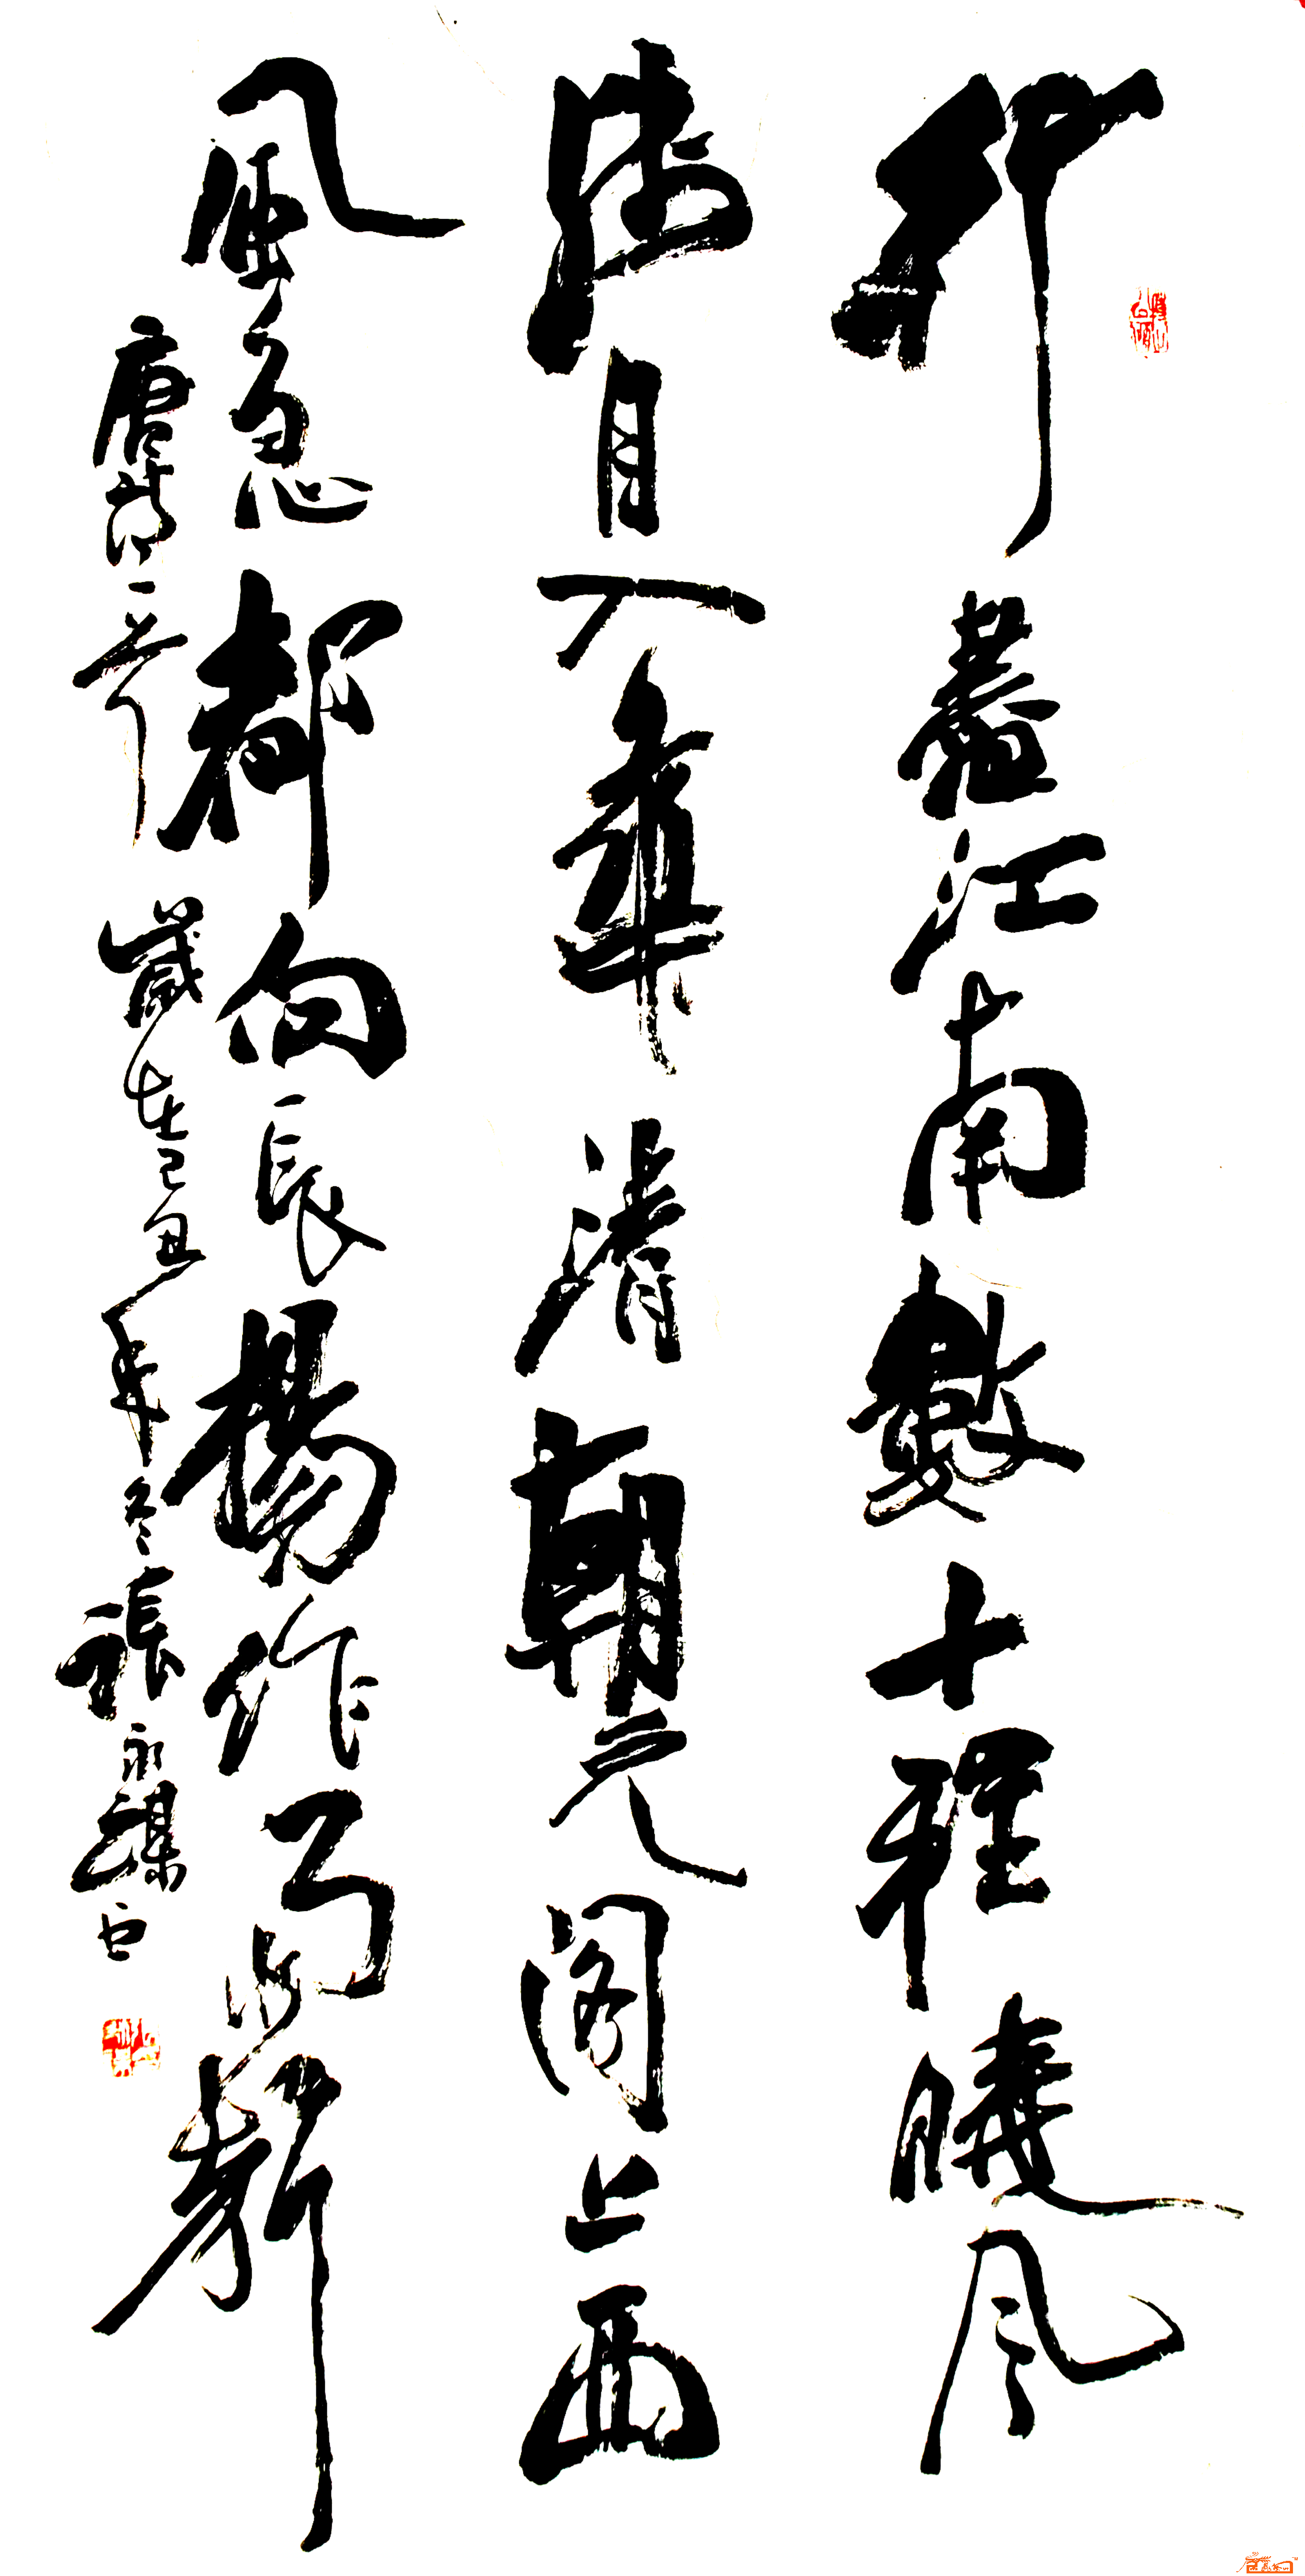 行盡江南數十程曉風
殘月入華清朝元閣上西
風急都向長楊作雨聲
唐詩一首 歲在己丑年冬張永謀書